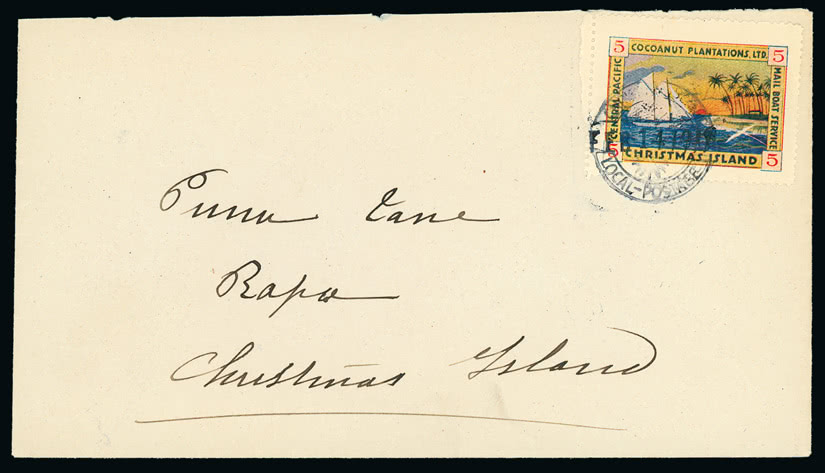 5 COCOANUT PLANTATIONS, LTD. 5
CENTRAL PACIFIC
MAIL BOAT SERVICE
5 CHRISTMAS ISLAND 5
LOCAL-POSTAGE
Puna Vane
Rapa
Christmas Island